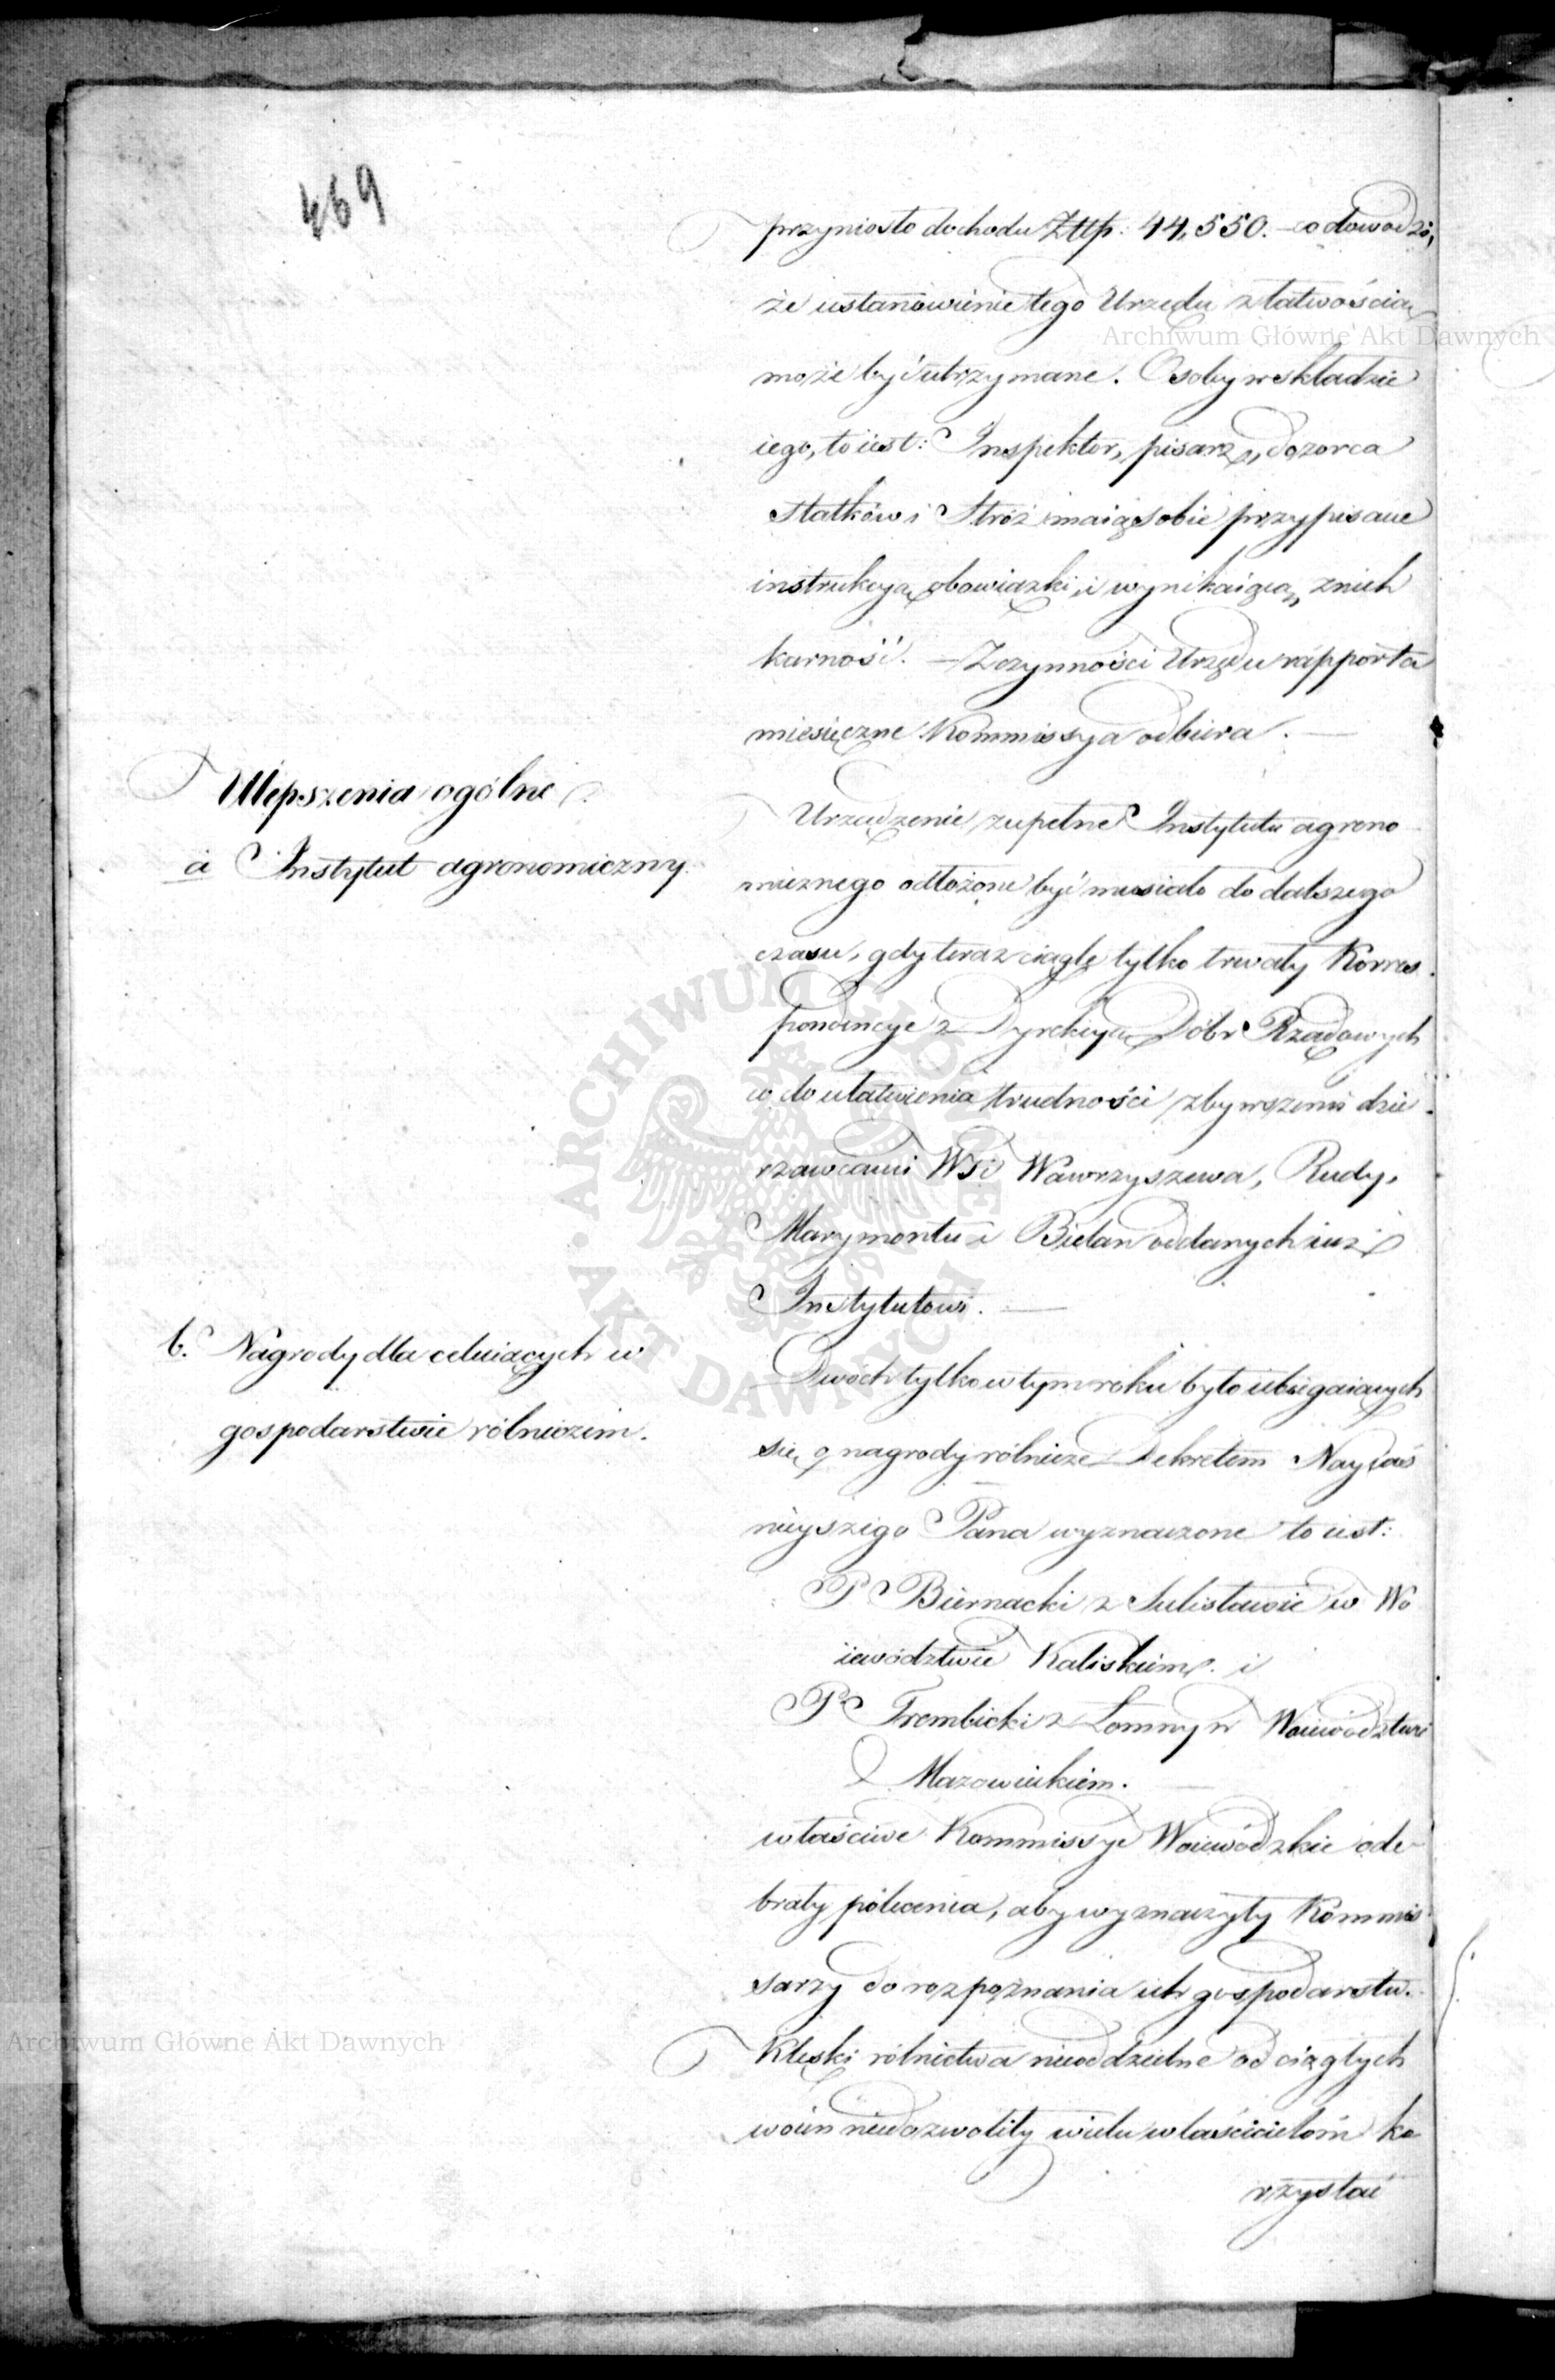 469
przyniosło dochodu Złłp. 44,550. – co dowodzi,
że ustanowienie tego Urzędu z łatwością
może być utrzymane. Osoby w składzie
iego, to iest: Inspektor, pisarz, dozorca
Statków i Stróż maią sobie przypisane
instrukcyą obowiązki, i wynikaiącą z nich
karność. – Z czynności Urzędu rapporta
miesięczne Kommissya odbiera. –
Ulepszenia ogólne
a Instytut agronomiczny.
Urządzenie zupełne Instytutu agrono
micznego odłożone być musiało do dalszego
czasu, gdy teraz ciągle tylko trwały Korres
pondencye z Dyrekcyą Dóbr Rządowych
do ułatwienia trudności z bywszemi dzie
rzawcami Wsi Wawrzyszewa, Rudy,
Marymontu i Bielan oddanych iuż
Instytutowi. –
b. Nagrody dla celuiących w
gospodarstwie rólniczem.
Dwóch tylko w tym roku było ubiegaiących
się o nagrody rólnicze Dekretem Nayiaś
nieyszego Pana wyznaczone to iest:
P Biernacki z Sulisławic w Wo
iewództwie Kaliskiem. i
P Trembicki z Łomny w Woiewództwie
Mazowieckiem. –
właściwe Kommissye Woiewódzkie ode-
brały polecenia, aby wyznaczyły Kommis
sarzy do rozpoznania ich gospodarstw.
Klęski rólnictwa nieoddzielne od ciągłych
woien niedozwoliły wielu właścicielom ko
rzystać
Archiwum Główne Akt Dawnych
Archiwum Główne Akt Dawnych
ARCHIWUM GŁÓWNE AKT DAWNYCH